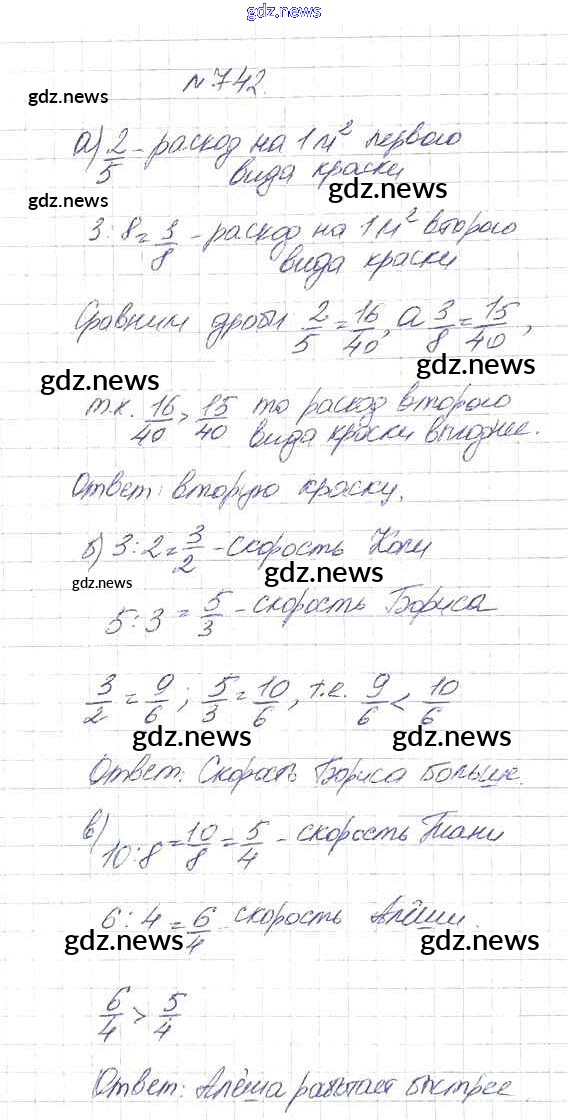 gdz.news
№ 742.
gdz.news
а) 2/5 - расход на 1 м² первого
вида краски
gdz.news
gdz.news
3 : 8 = 3/8 - расход на 1 м² второго
вида краски
Сравним дроби 2/5 = 16/40, а 3/8 = 15/40,
gdz.news
gdz.news
т.к. 16/40 > 15/40 то расход второго
вида краски выгоднее.
Ответ: вторую краску.
б) 3 : 2 = 3/2 - скорость Коли
gdz.news
gdz.news
5 : 3 = 5/3 - скорость Бориса
3/2 = 9/6 ; 5/3 = 10/6, т.е. 9/6 < 10/6
gdz.news
gdz.news
Ответ: Скорость Бориса больше.
в) 10 : 8 = 10/8 = 5/4 - скорость Тани
6 : 4 = 6/4 скорость Алёши.
gdz.news
gdz.news
6/4 > 5/4
Ответ: Алёша работает быстрее